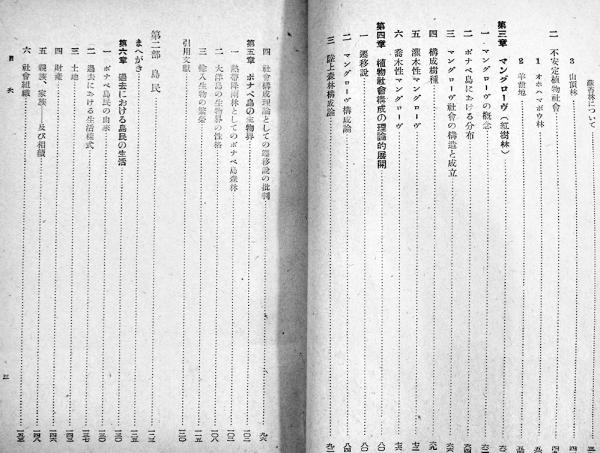 蘇苔林について
3 山頂林
二 不安定植物社會
1 オホハマボウ林
2 草前地
第三章 マングローヴ(紅樹林)
一 マングローヴの概念
二 ポナペ島における分布
三 マングローヴ社會の構造と成立
四 構成樹種
五 灌木性マングローヴ
六 喬木性マングローヴ
第四章 植物社會構成の理論的展開
一 遷移說
二 マングローヴ構成論
三 陸上森林構成論
四 社會構成理論としての遷移說の批判
第五章 ポナペ島の生物界
一 熱帶降雨林としてのポナペ島森林
二 大洋島の生物界の性格
三 輸入生物の繁榮
引用文獻
第二部 島民
まへがき
第六章 過去における島民の生活
一 ポナペ島民の由來
二 過去における生活樣式
三 土地
四 財產
五 親族、家族──及び相續
六 社會組織
目次